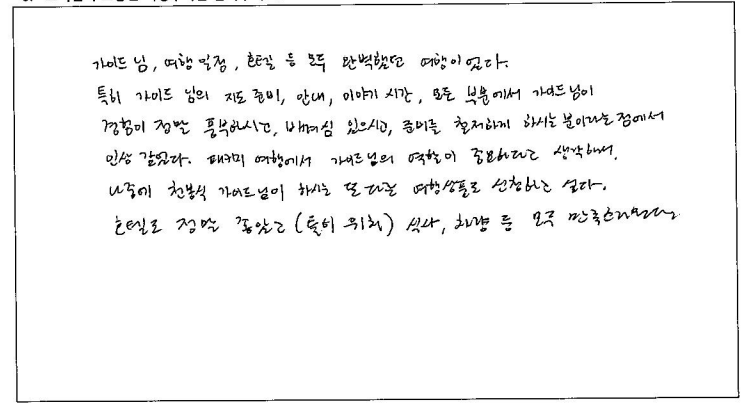 가이드 님, 여행 일정, 호텔 등 모두 완벽했던 여행이었다.
특히 가이드 님의 지도 준비, 안내, 이야기 시간, 모든 부분에서 가이드님이
경험이 정말 풍부하시고, 배려심 있으시고, 준비를 철저하게 하시는 분이라는 점에서
인상 깊었다. 패키지 여행에서 가이드님의 역할이 중요하다고 생각해서,
나중에 천봉식 가이드님이 하시는 또 다른 여행상품도 신청하고 싶다.
호텔도 정말 좋았고 (특히 위치) 식사, 차량 등 모두 만족스러웠다.